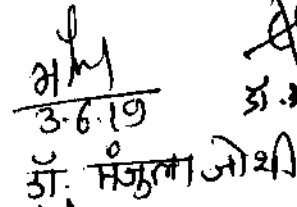 3.6.19
डॉ.
डॉ. मंजुला जोशी